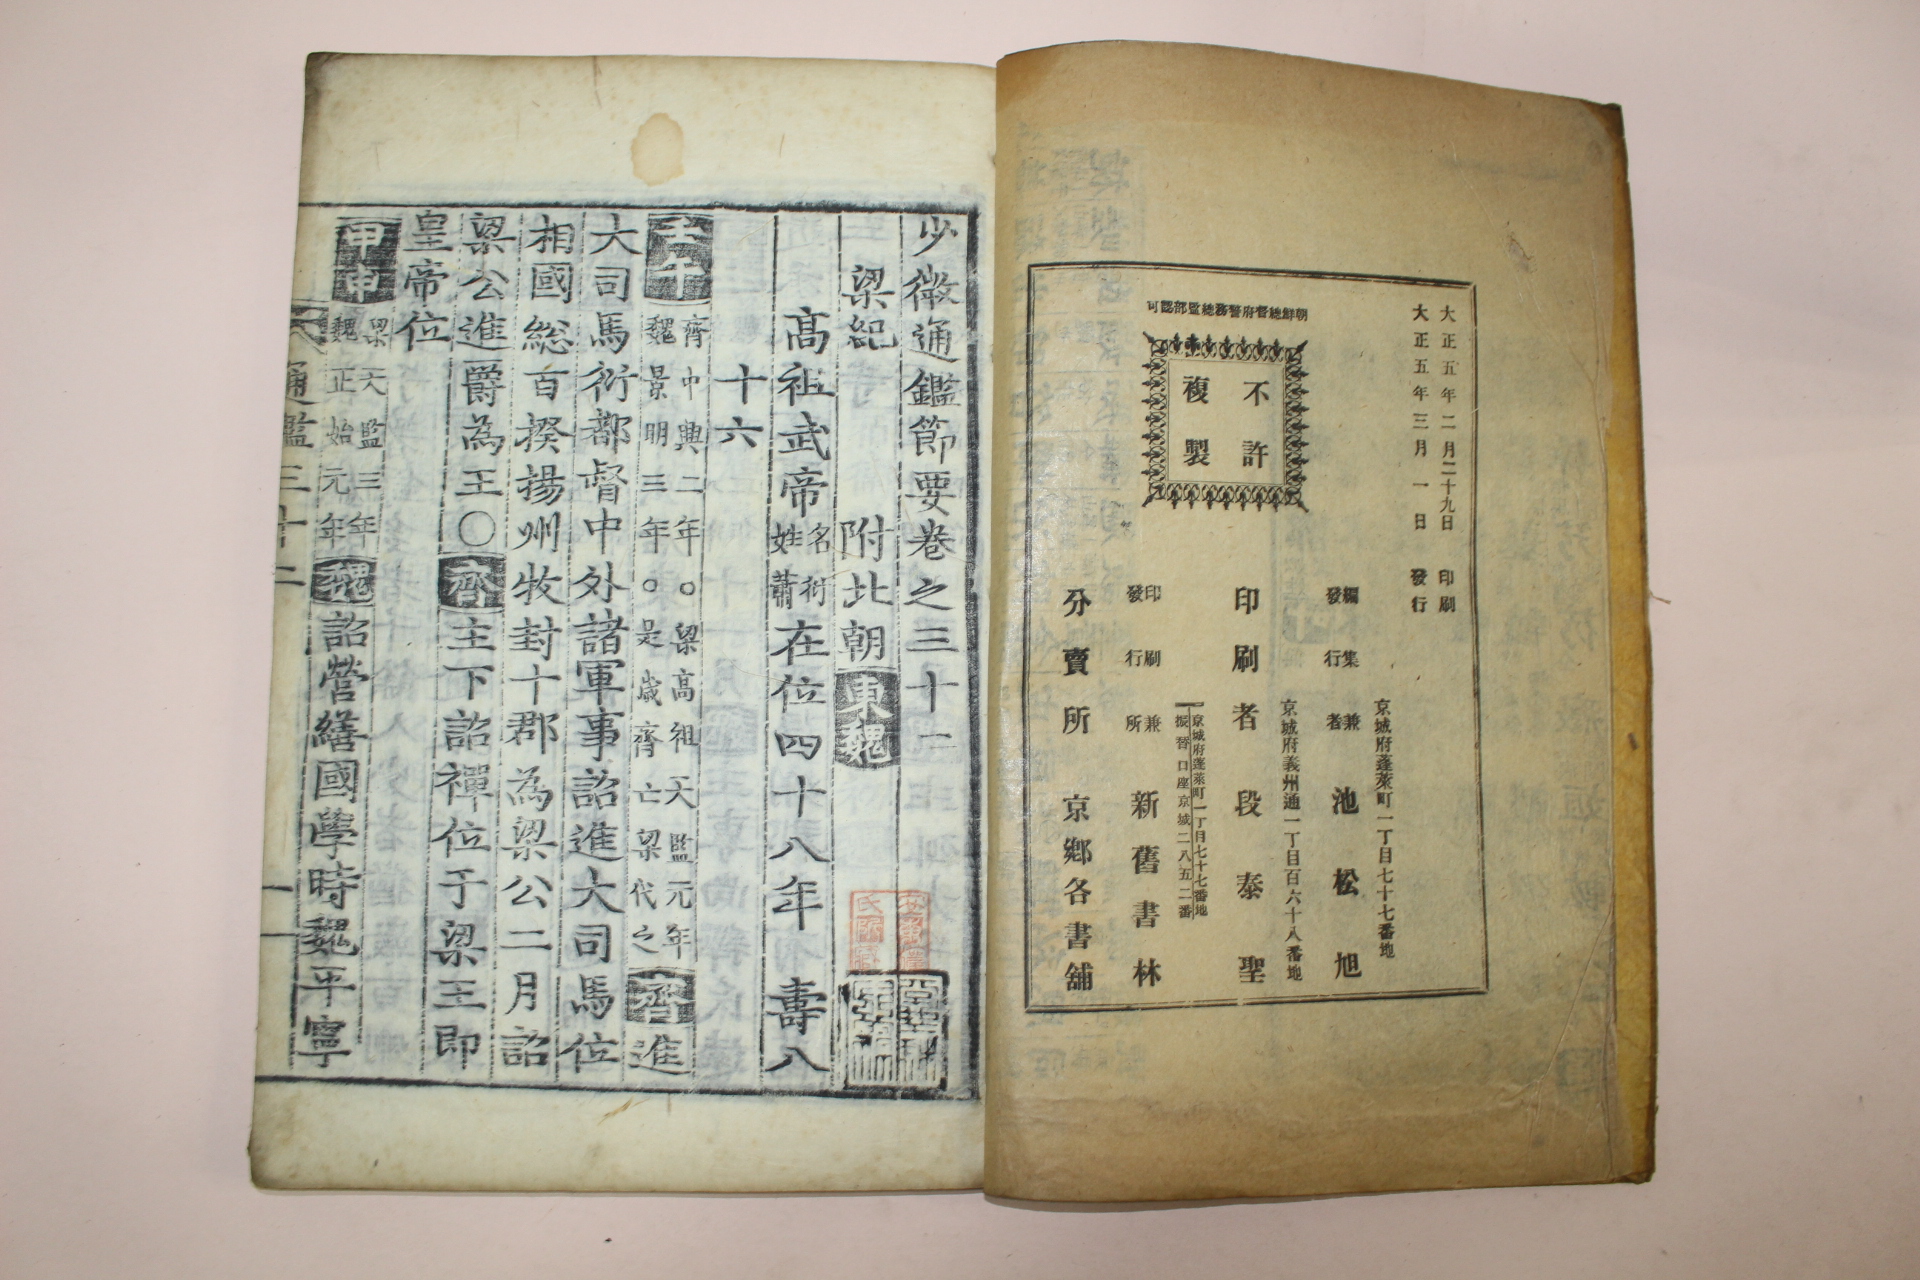 大正五年二月二十九日 印刷
大正五年三月一日 發行
朝鮮總督府警務總監部認可
不許
複製
京城府蓬萊町一丁目七十七番地
編集兼
發行者 池松旭
京城府義州通一丁目百六十八番地
印刷者 段泰聖
京城府蓬萊町一丁目七十七番地
振替口座京城二八五二番
印刷兼
發行所 新舊書林
分賣所 京鄉各書舖
少微通鑑節要卷之三十二
梁紀 附北朝東魏
高祖武帝名衍姓蕭在位四十八年 壽八
十六
壬午齊中興二年○梁高祖天監元年魏景明三年○是歲齊亡梁代之齊進
大司馬衍都督中外諸軍事詔進大司馬位
相國總百揆揚州牧封十郡為梁公二月詔
梁公進爵為王○齊主下詔禪位于梁王即
皇帝位
甲申梁天監三年魏正始元年魏詔營繕國學時魏平寧
通鑑三十二
一